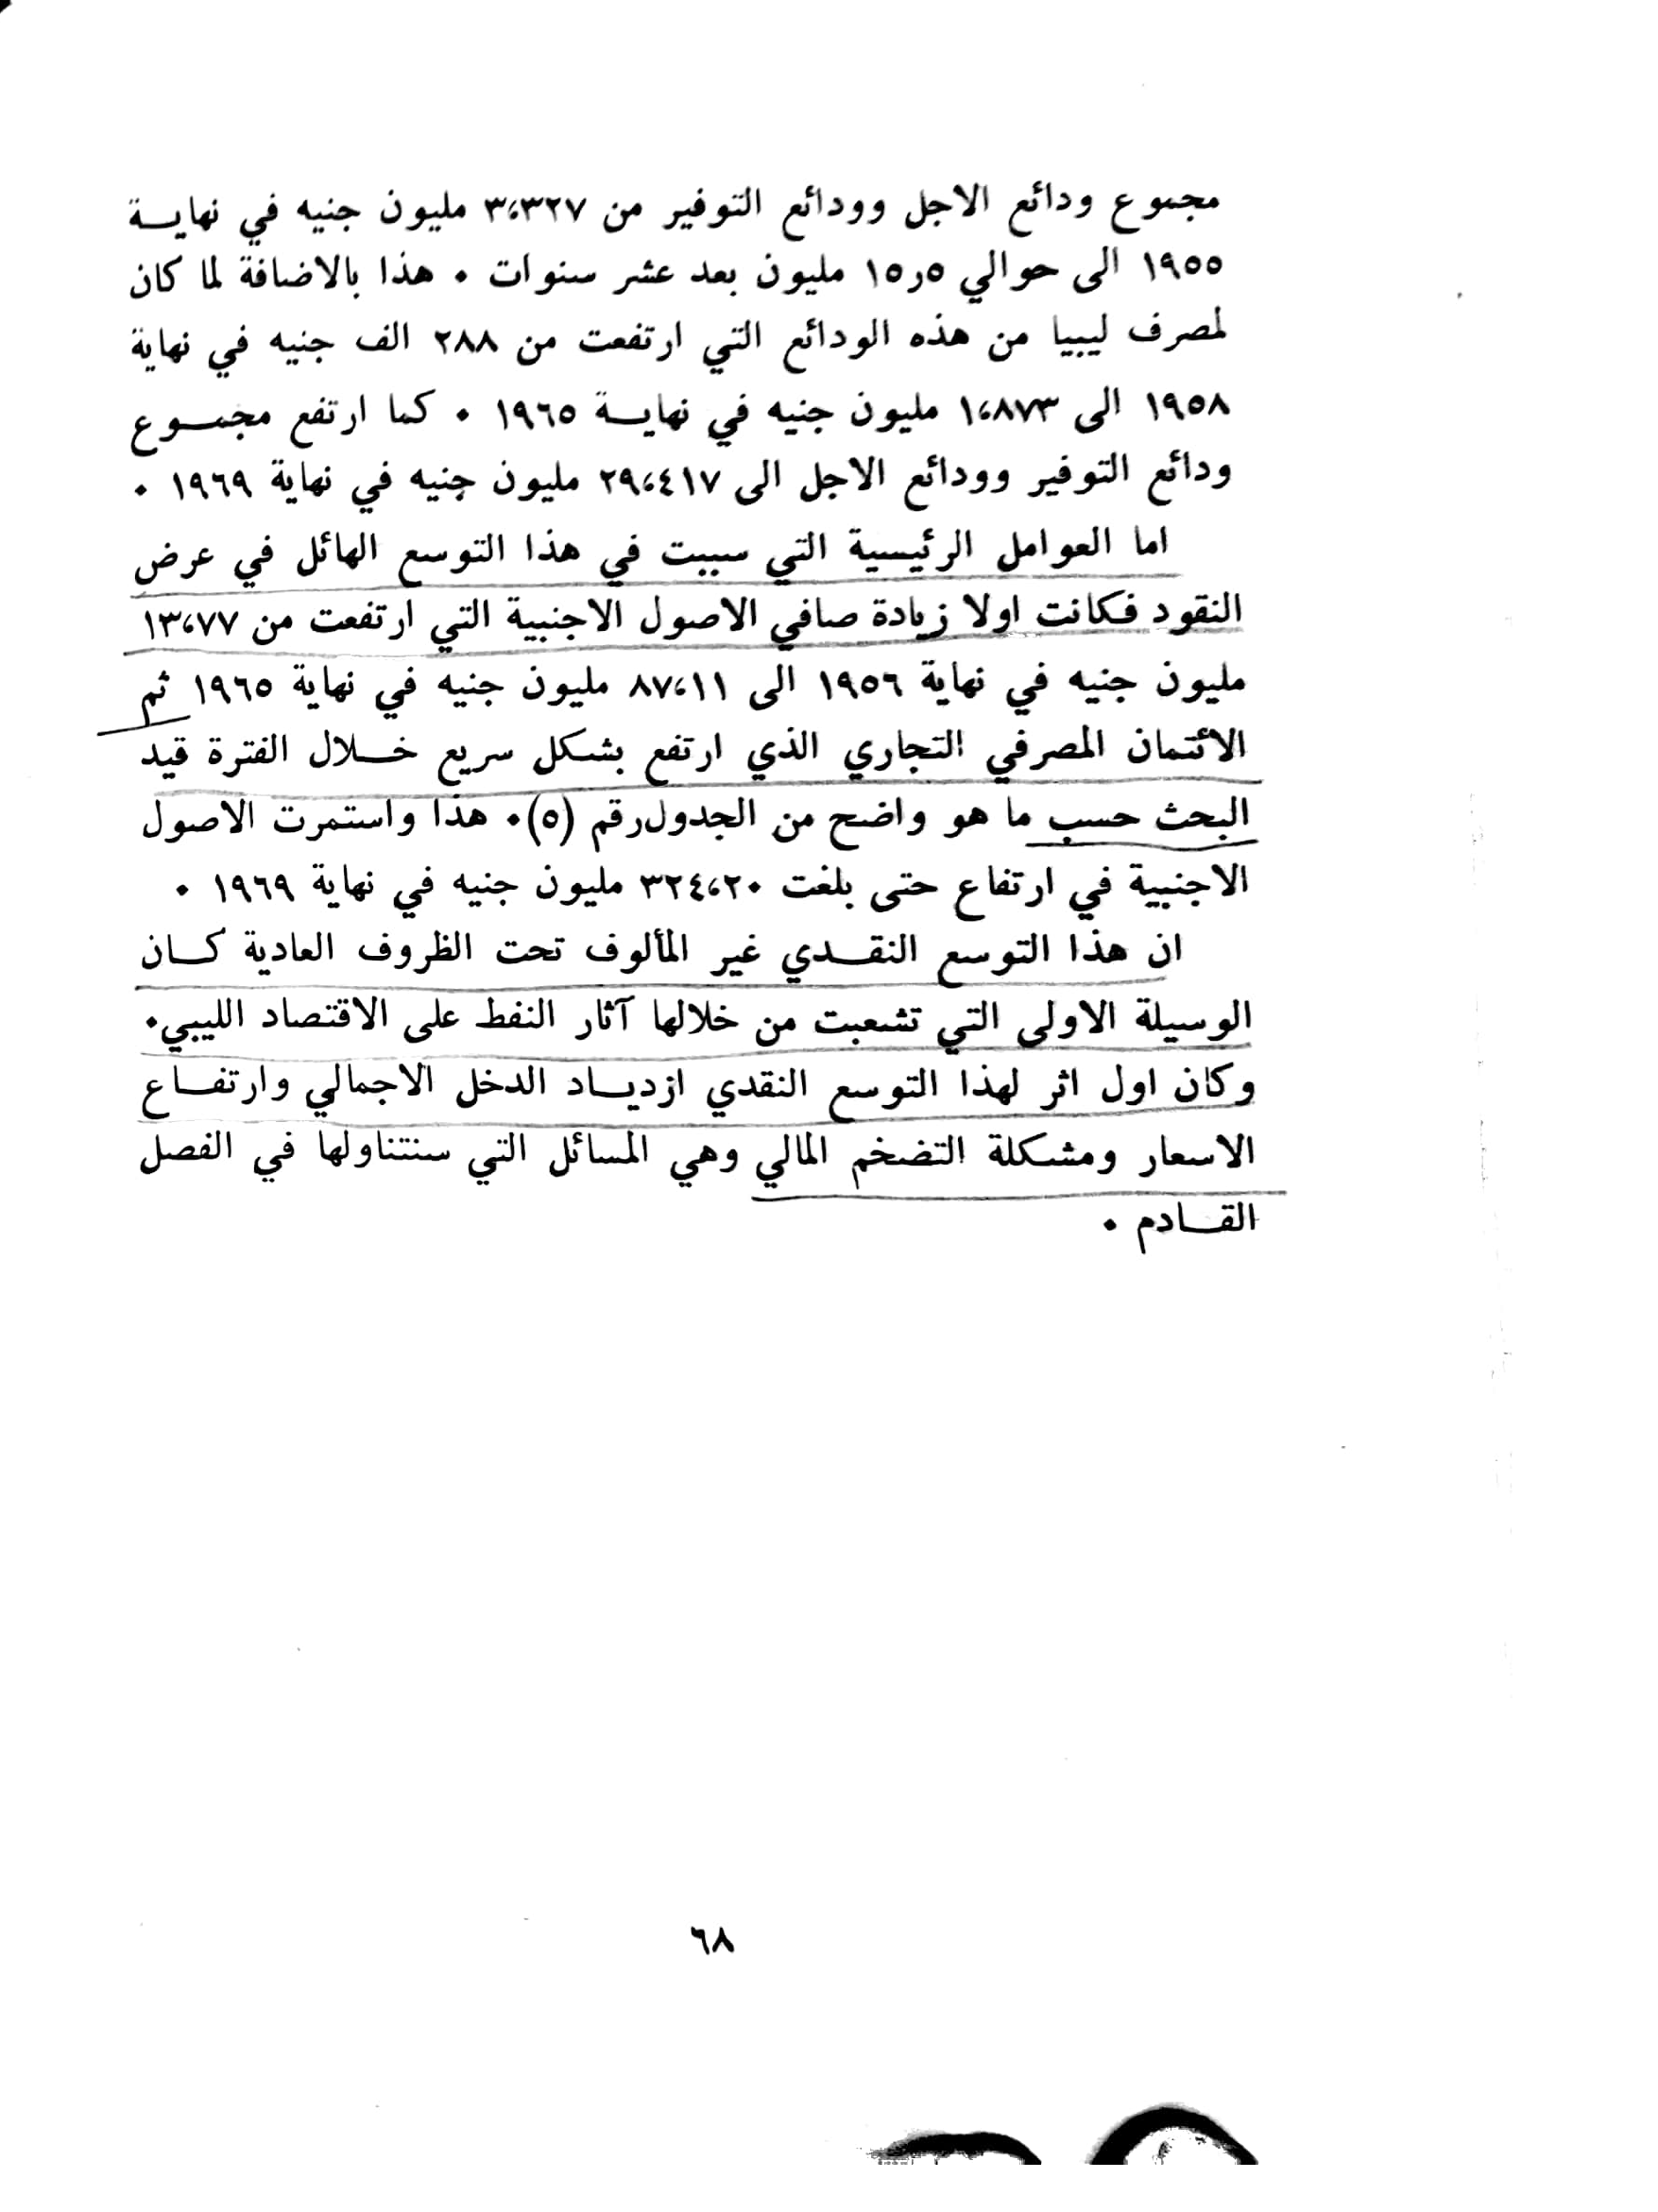 مجموع ودائع الاجل وودائع التوفير من ٣،٣٢٧ مليون جنيه في نهايـــة
١٩٥٥ الى حوالي ٥ر١٥ مليون بعد عشر سنوات ٠ هذا بالاضافة لما كان
لمصرف ليبيا من هذه الودائع التي ارتفعت من ٢٨٨ الف جنيه في نهاية
١٩٥٨ الى ١،٨٧٣ مليون جنيه في نهايـــة ١٩٦٥ ٠ كما ارتفع مجمـــوع
ودائع التوفير وودائع الاجل الى ٢٩،٤١٧ مليون جنيه في نهاية ١٩٦٩ ٠
اما العوامل الرئيسية التي سببت في هذا التوسع الهائل في عرض
النقود فـكانت اولا زيادة صافي الاصول الاجنبية التي ارتفعت من ١٣،٧٧
مليون جنيه في نهاية ١٩٥٦ الى ٨٧،١١ مليون جنيه في نهاية ١٩٦٥ ثم
الائتمان المصرفي التجاري الذي ارتفع بشكل سريع خـــلال الفترة قيد
البحث حسب ما هو واضح من الجدول رقم (٥)٠ هذا واستمرت الاصول
الاجنبية في ارتفاع حتى بلغت ٣٢٤،٢٠ مليون جنيه في نهاية ١٩٦٩ ٠
ان هذا التوسع النقـــدي غير المألوف تحت الظروف العادية كـــان
الوسيلة الاولى التي تشعبت من خلالها آثار النفط على الاقتصاد الليبي٠
وكان اول اثر لهذا التوسع النقدي ازديـــاد الدخل الاجمالي وارتفـــاع
الاسعار ومشكلة التضخم المالي وهي المسائل التي سنتناولها في الفصل
القـــادم ٠
٦٨